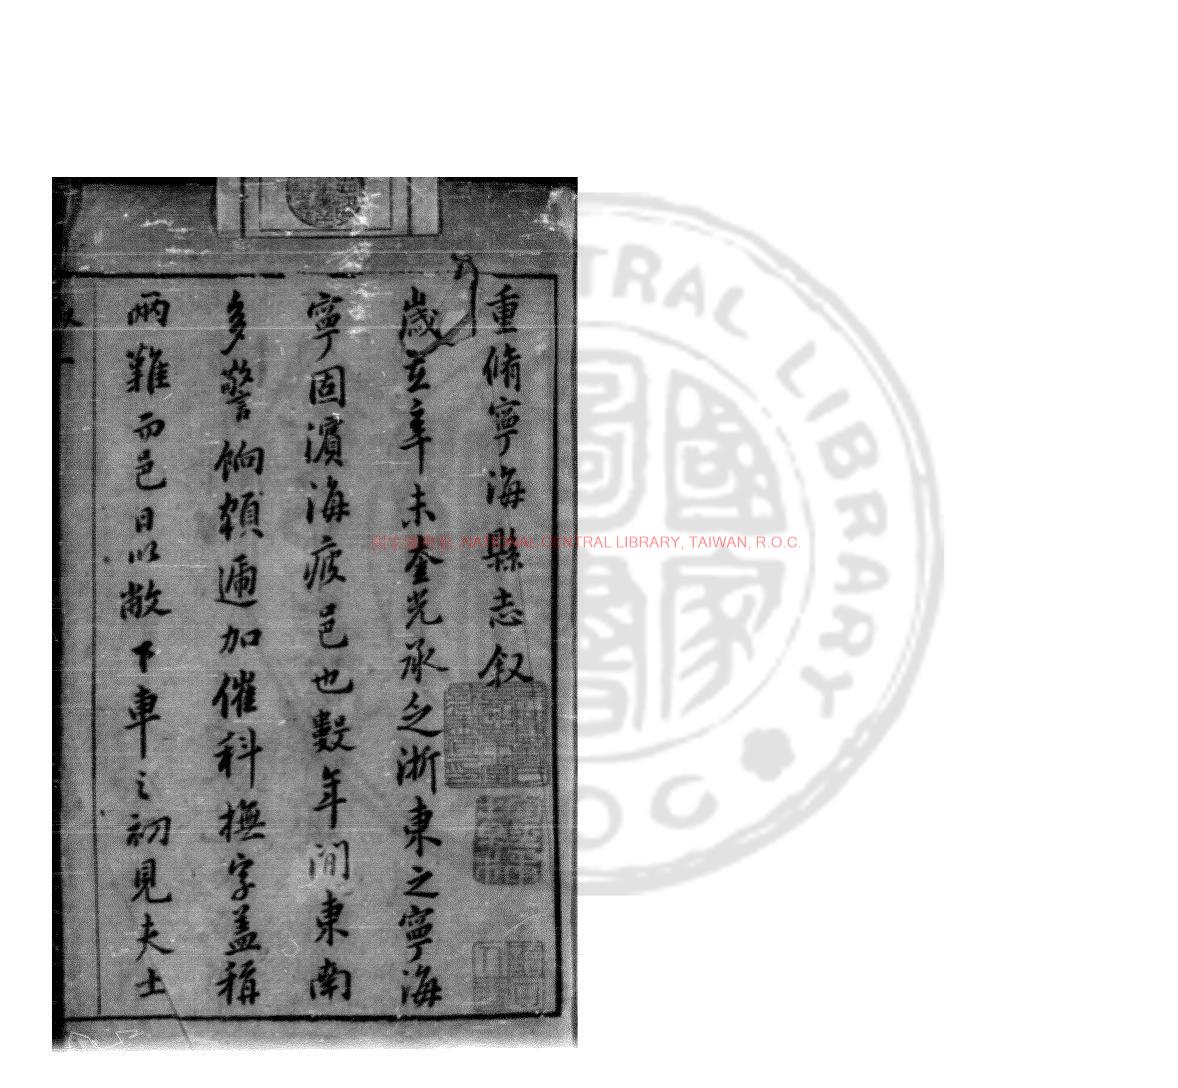 重脩寧海縣志叙
歲在辛未奎光承乏浙東之寧海
寧固濵海疲邑也數年間東南
多警餉額逓加催科撫字盖稱
兩難而邑日以敝下車之初見夫士
NATIONAL CENTRAL LIBRARY, TAIWAN, R.O.C.
TRAL LIBRARY
國家圖書